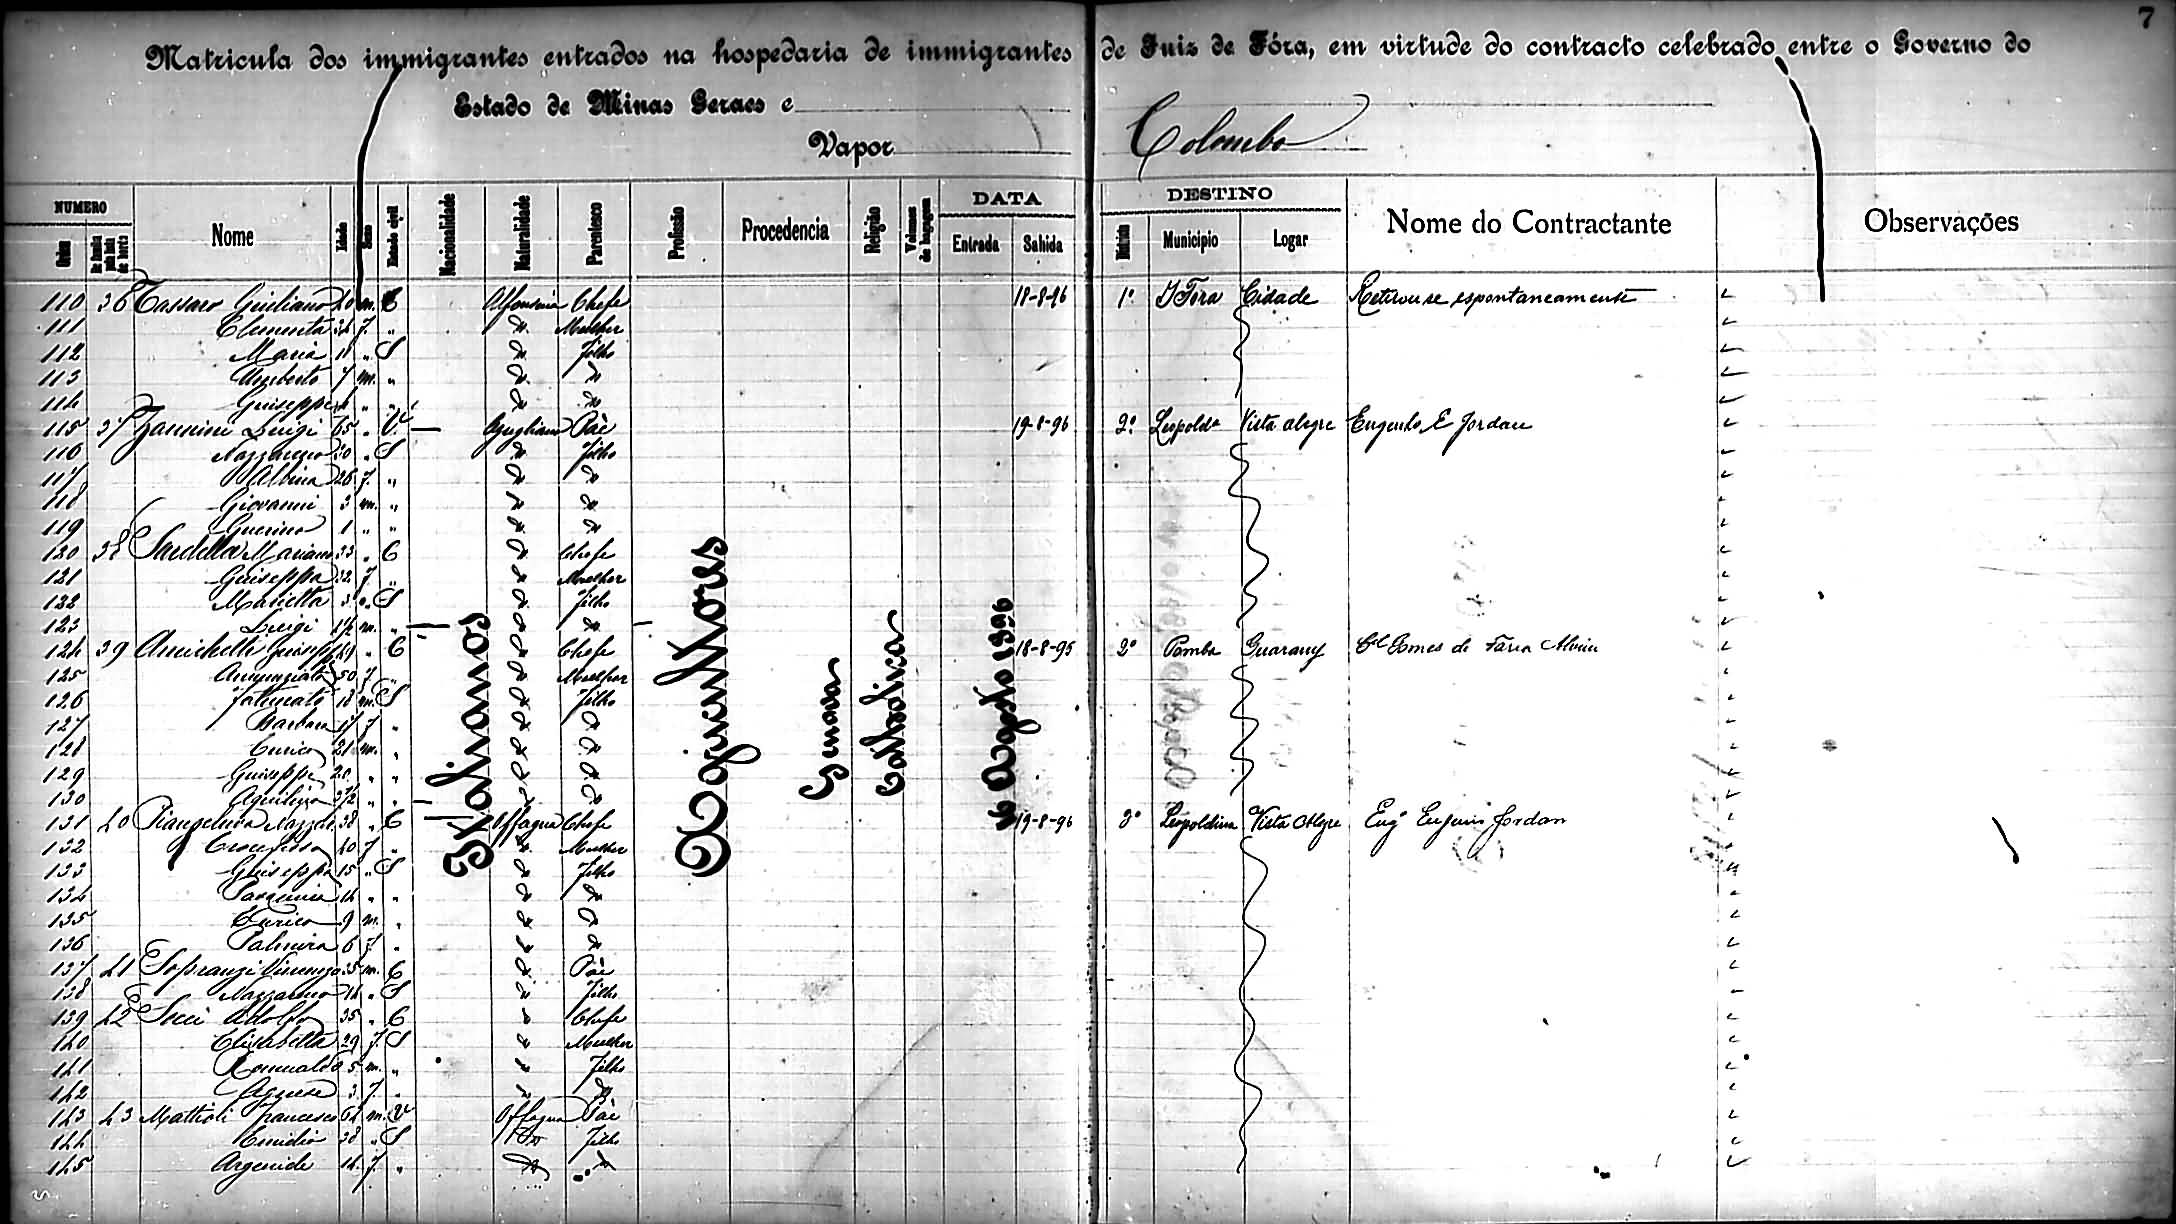 7
Matricula dos immigrantes entrados na hospedaria de immigrantes de Juiz de Fóra, em virtude do contracto celebrado entre o Governo do
Estado de Minas Geraes e
Vapor Colombo
NUMERO DATA DESTINO
Ordem Nome Idade Sexo Estado civil Nacionalidade Naturalidade Parentesco Profissão Procedencia Religião Volumes de bagagem Entrada Sahida Municipio Logar Nome do Contractante Observações
Italianos Agricultores Genova Catholica Agosto 1896
110 36 Tassaro Giuliano 40 m. C Chefe 18-8-96 1º J Fora Cidade Retirou se espontaneamente
111 Clementa 34 f. " " Mulher
112 Maria 11 " S " Filho
113 Umberto 7 m. " " "
114 Guiseppe " " " "
115 37 Zannini Luigi 65 " V Pàe 19-8-96 2º Leopolda Vista alegre Eugenho E Jordan
116 Nazzareno 30 " S " Filho
117 Albina 26 f. " " "
118 Giovanni 3 m. " " "
119 Guerino 1 " " " "
120 38 Sardella Mariano 33 " C " Chefe
121 Guiseppa 32 f. " " Mulher
122 Marietta 3 " S " Filho
123 Luigi 1½ m. " " "
124 39 Guisepp 49 " C " Chefe 18-8-95 2º Pomba Guarany Cel Gomes de Faria
125 Annunziata 50 f. " " Mulher
126 Fortunato 18 m. S " Filho
127 Barbara 17 f " " "
128 Enrico 21 m. " " "
129 Guiseppe 20 " " " "
130 " " " "
131 40 Piangelura Nazzar. 38 " C Offagna Chefe 19-8-96 3º Leopoldina Vista Alegre Engº Eugenio Jordan
132 Crocefissa 40 f " " Mulher
133 Guiseppa 15 " S " Filho
134 14 " " " "
135 Enrico 9 m. " " "
136 Palmira 6 f. " " "
137 41 Sopranzi Vincenzo 35 m. C " Pàe
138 Nazzareno 14 " S " Filho
139 42 Socci Adolfo 35 " C " Chefe
140 Elisabetta 29 f. S " Mulher
141 Romualdo 5 m. " " Filho
142 Agnese 3 f. " " "
143 43 Mattioli Francesco 64 m. V Offagna Pàe
144 Emidio 38 " S " Filho
145 Argenide 14 f. " " "